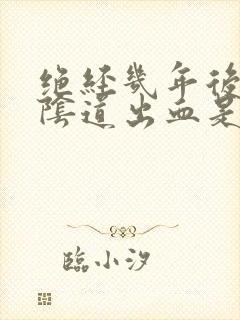 绝经幾年後
陰道出血是
臨小汐